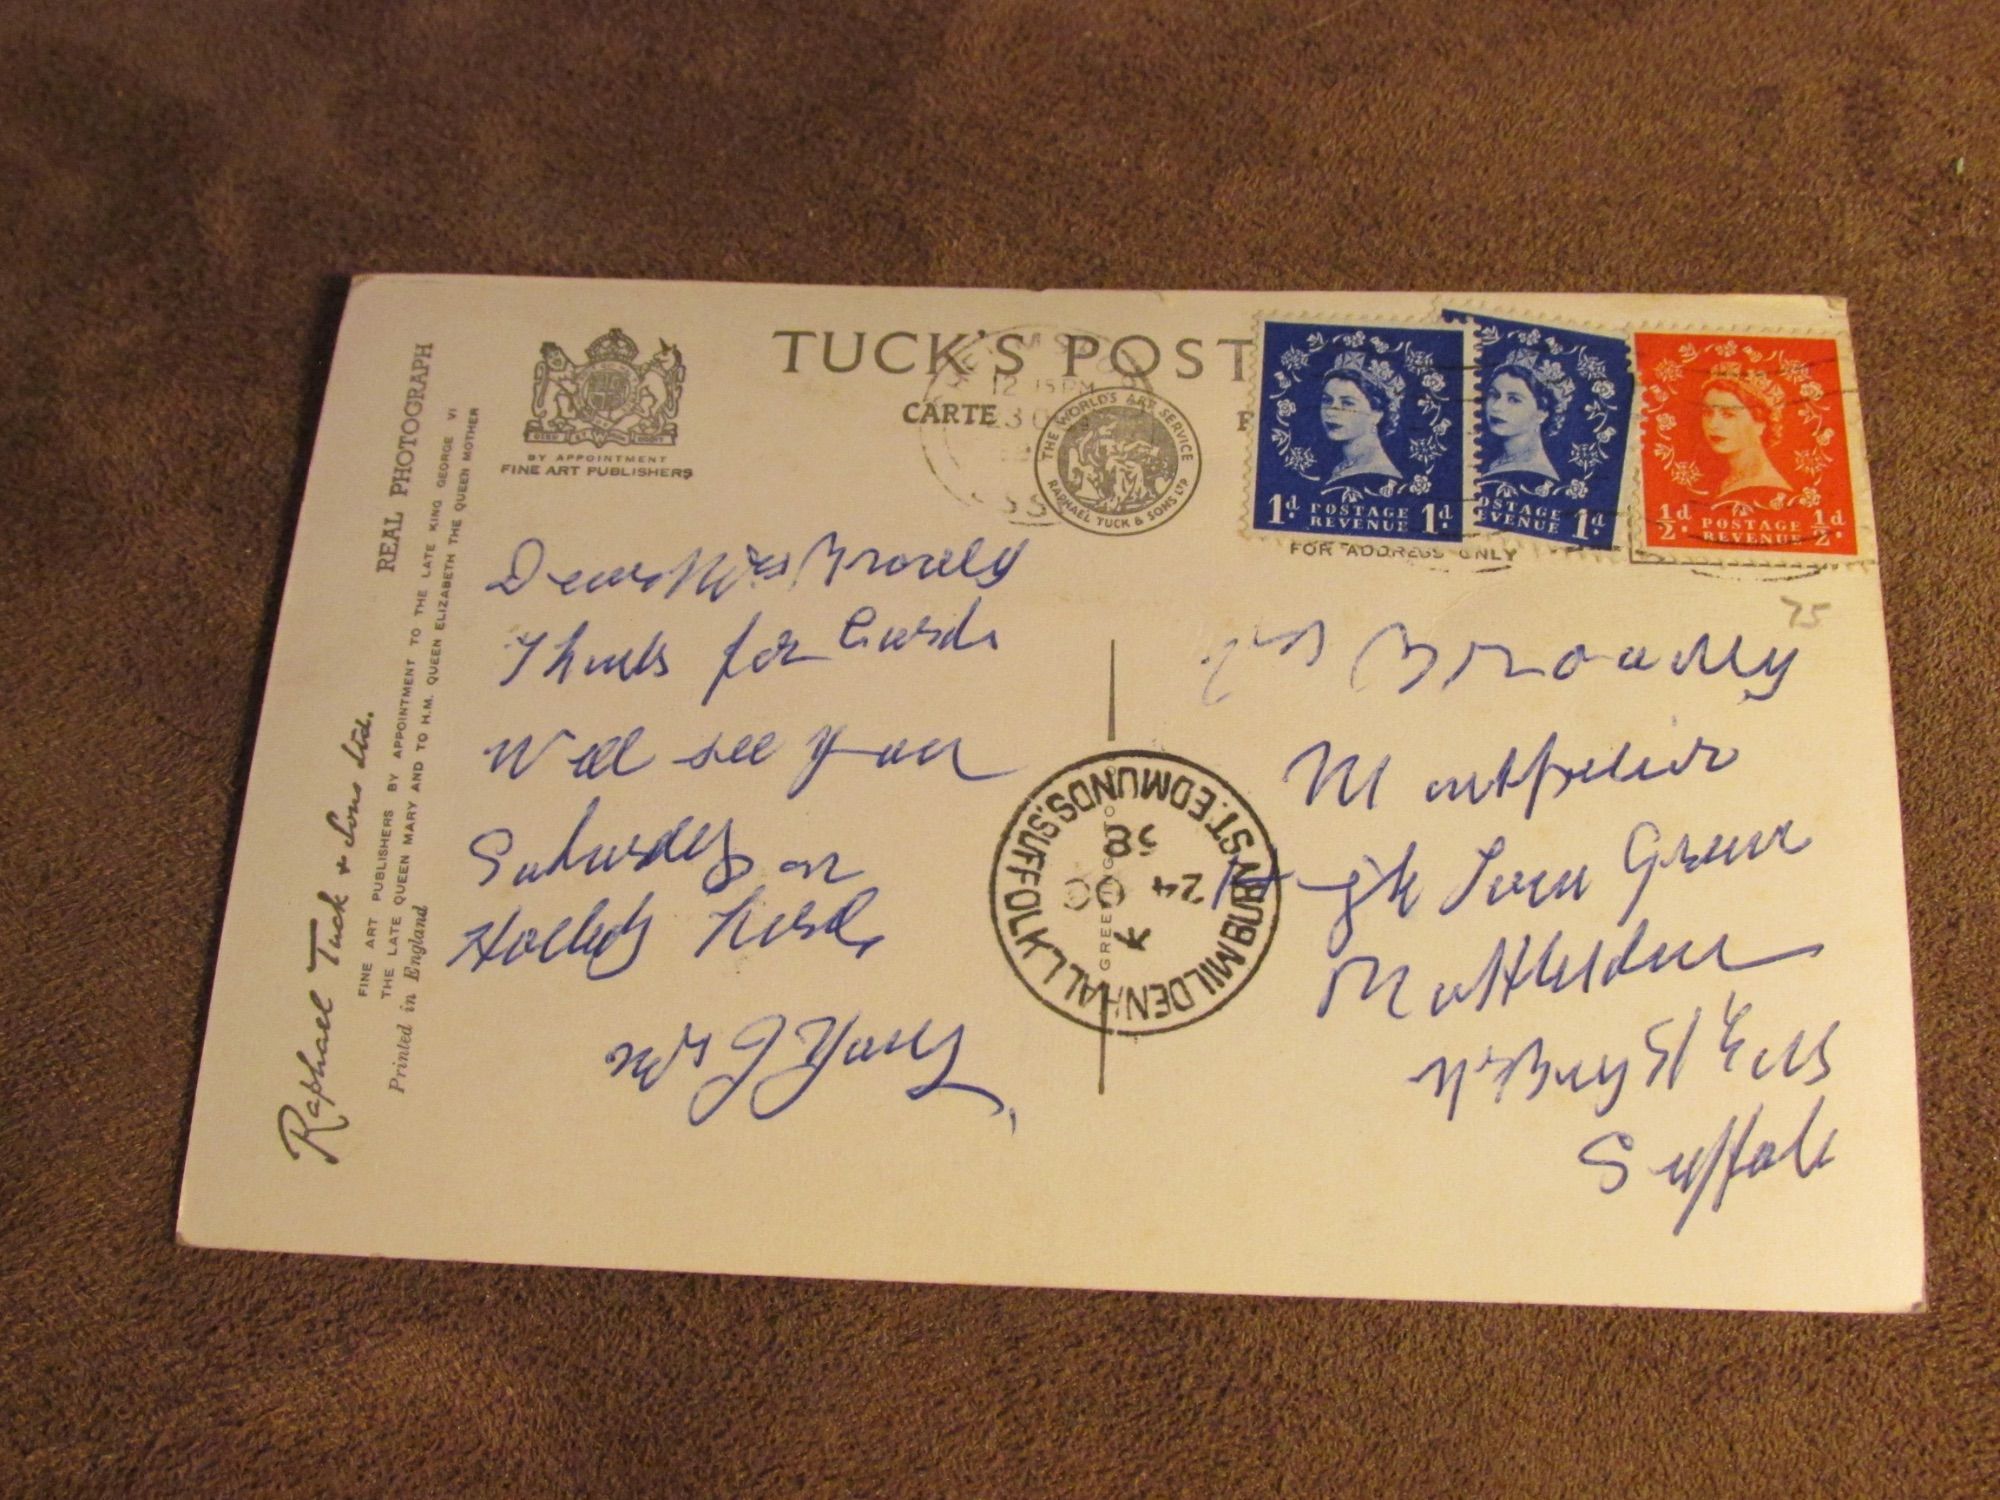 TUCK'S POST
CARTE
BY APPOINTMENT
FINE ART PUBLISHERS
REAL PHOTOGRAPH
Raphael Tuck & Sons Ltd.
FINE ART PUBLISHERS BY APPOINTMENT TO THE LATE KING GEORGE VI
THE LATE QUEEN MARY AND TO H.M. QUEEN ELIZABETH THE QUEEN MOTHER
Printed in England
12 15 PM
30
THE WORLD'S ART SERVICE
RAPHAEL TUCK & SONS LTD
1d. POSTAGE REVENUE 1d.
POSTAGE REVENUE 1d.
½d. POSTAGE REVENUE ½d.
FOR ADDRESS ONLY
75
Dear Mrs
Thanks for Cards
Will see you
Saturday on
Mrs J Young
MILDENHALL
BURY ST. EDMUNDS. SUFFOLK
24 OC
58
GREETING TO
Mrs Broadley
Montpelier
High Town Green
Rattlesden
Nr Bury St Eds
Suffolk